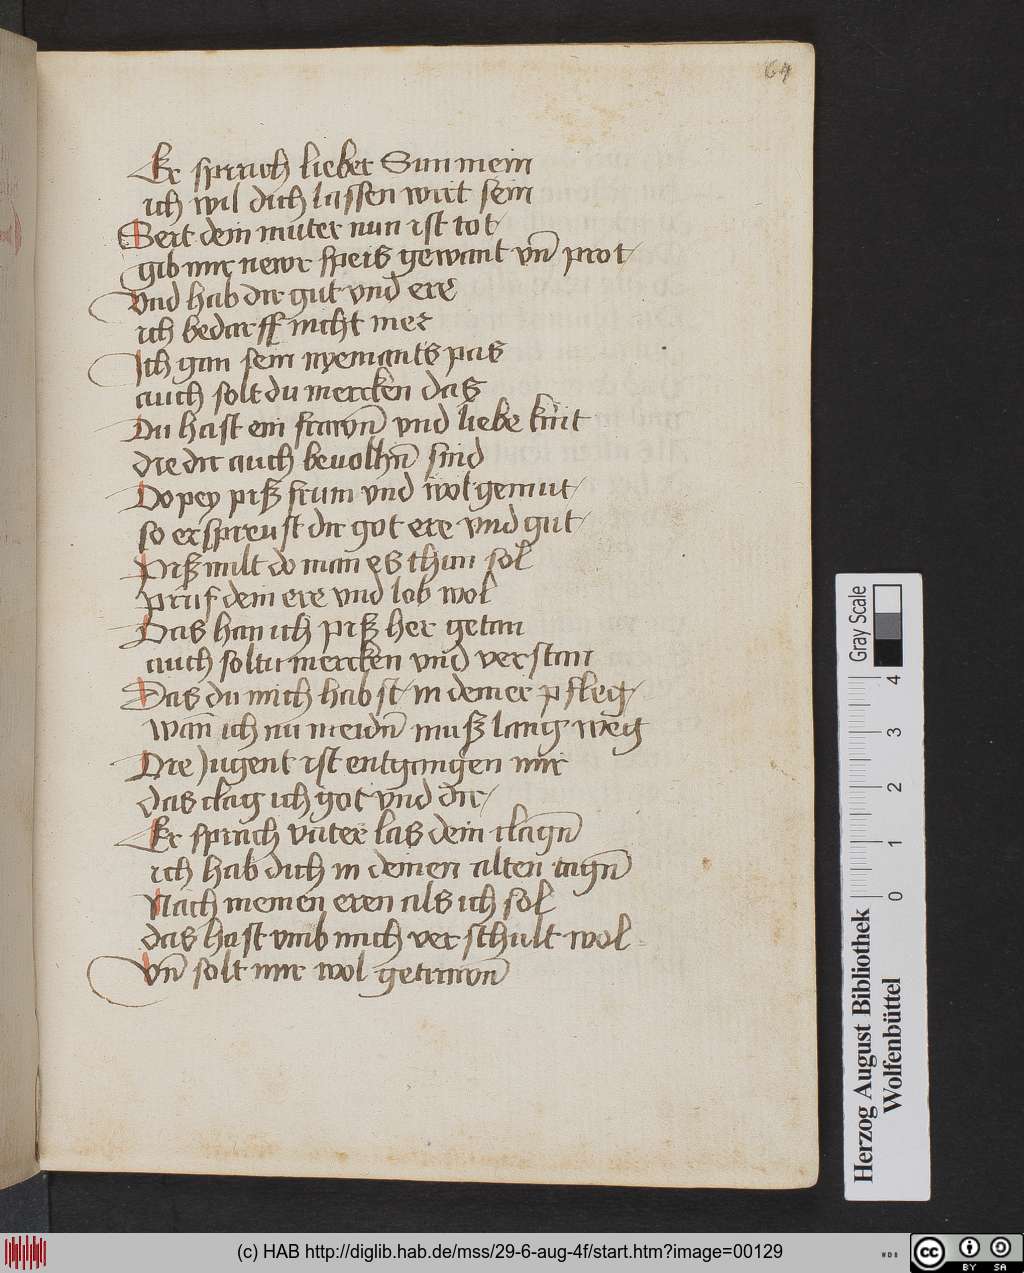 64
Er sprach lieber Sun mein
ich wil dich lassen wirt sein
Seit dein muter nun ist tot
gib mir newr speis gewant vn̄ prot
Vnd hab dir gut vnd ere
ich bedarff nicht mer
Ich gan sein nyemants pas
auch solt du mercken das
Du hast ein frawn̄ vnd liebe kint
die dir auch beuolhn̄ sind
Dopey piß frum vnd wolgemut
so erspreust dir got ere vnd gut
Piß milt do man es thun sol
prüf dem ere vnd lob wol
Das han ich piß her getan
auch soltu mercken vnd verstan
Das du mich habst in deiner pfleg
wan̄ ich nu meidn̄ muß lang weg
Die Jugent ist entgangen mir
das clag ich got vnd dir
Er sprach vater las dein clagn̄
ich hab dich in deinen alten tagn̄
Nach meinen eren als ich sol
das hast vmb mich verschult wol
Vn̄ solt mir wol getrawn̄
Gray Scale
4
3
2
1
0
Herzog August Bibliothek
Wolfenbüttel
(c) HAB http://diglib.hab.de/mss/29-6-aug-4f/start.htm?image=00129
WDB
cc
BY SA